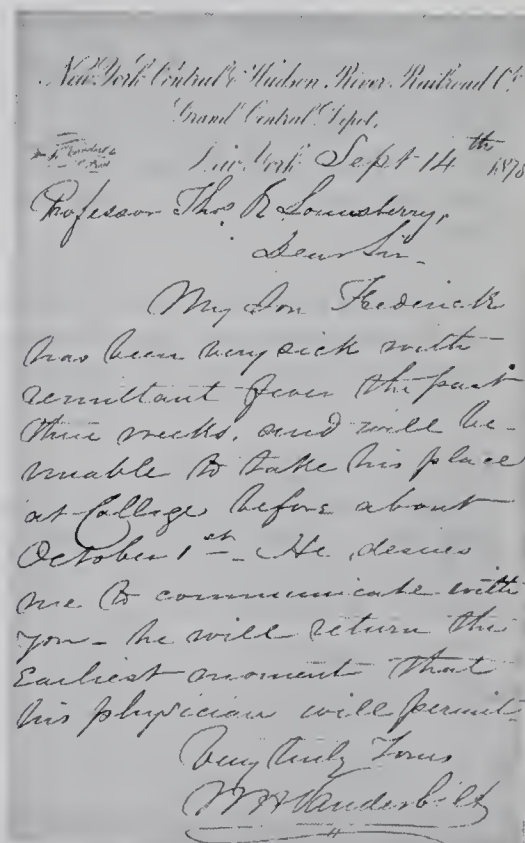 New York Central & Hudson River Railroad Co.
Grand Central Depot,
New York Sept 14th 1878
Professor Thos R Lounsberry,
Dear Sir -
My Son Frederick
has been very sick with
remittant fever the past
three weeks, and will be
unable to take his place
at College before about
October 1st - He desires
me to communicate with
you - he will return the
Earliest moment that
his physician will permit -
Very truly Yours
W H Vanderbilt